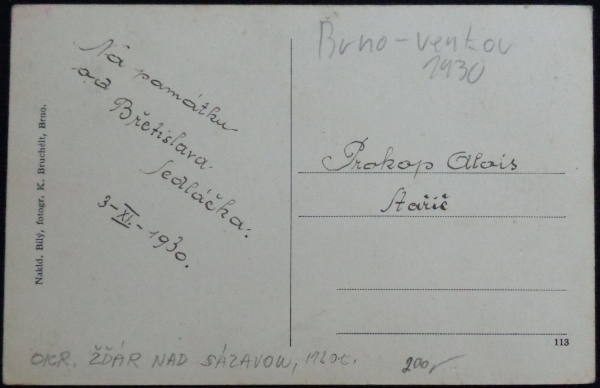 Na památku
od
Břetislava
Sedláčka.
3-XI.-1930.
Nakld. Bílý, fotogr. K. Bruchelt, Brno.
Brno-venkov
1930
Prokop Alois
Stařič
113
OKR. ŽĎÁR NAD SÁZAVOU,
200,-